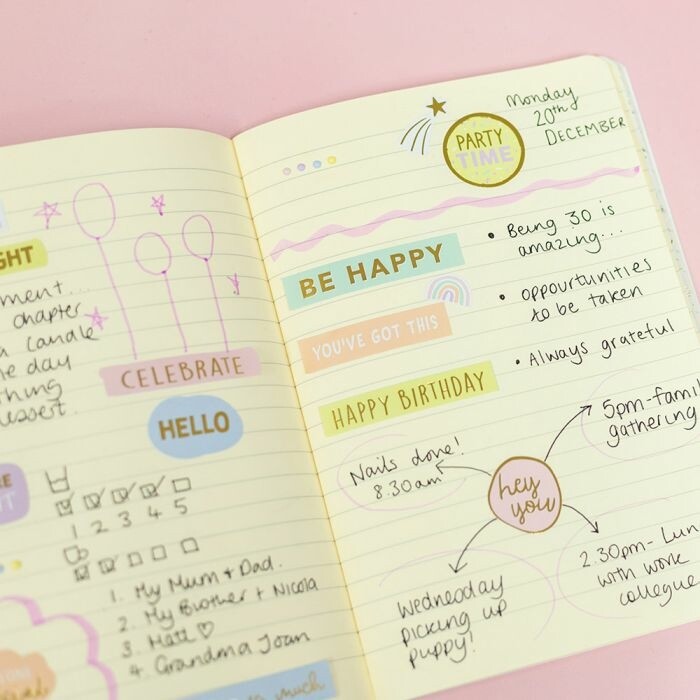 GHT
ment...
chapter
a candle
he day
thing
CELEBRATE
HELLO
1 2 3 4 5
1. My Mum + Dad.
2. My Brother + Nicola
3. Matt ♡
4. Grandma Joan
so much
Monday
20th
DECEMBER
PARTY
TIME
BE HAPPY
• Being 30 is
amazing...
YOU'VE GOT THIS
• oppourtunities
to be taken
HAPPY BIRTHDAY
• Always grateful
Nails done!
8.30am
hey
you
5pm-famil
gathering
Wednesday
picking up
puppy!
2.30pm- Lun
with work
collegue